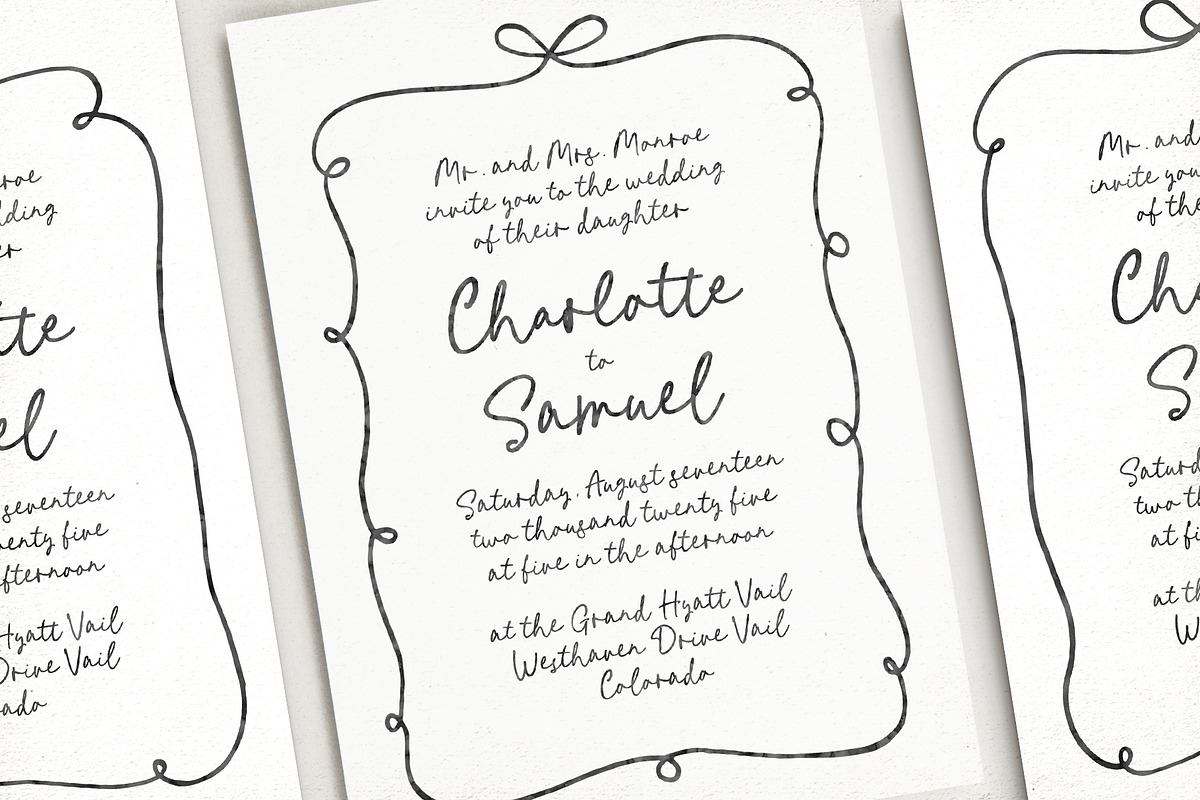 roe
dding
er
tte
el
seventeen
enty five
fternoon
Hyatt Vail
Drive Vail
ado
Mr. and Mrs. Monroe
invite you to the wedding
of their daughter
Charlotte
to
Samuel
Saturday, August seventeen
two thousand twenty five
at five in the afternoon
at the Grand Hyatt Vail
Westhaven Drive Vail
Colorado
Mr. and
invite you
of the
Cha
S
Saturd
two th
at fi
at th
W